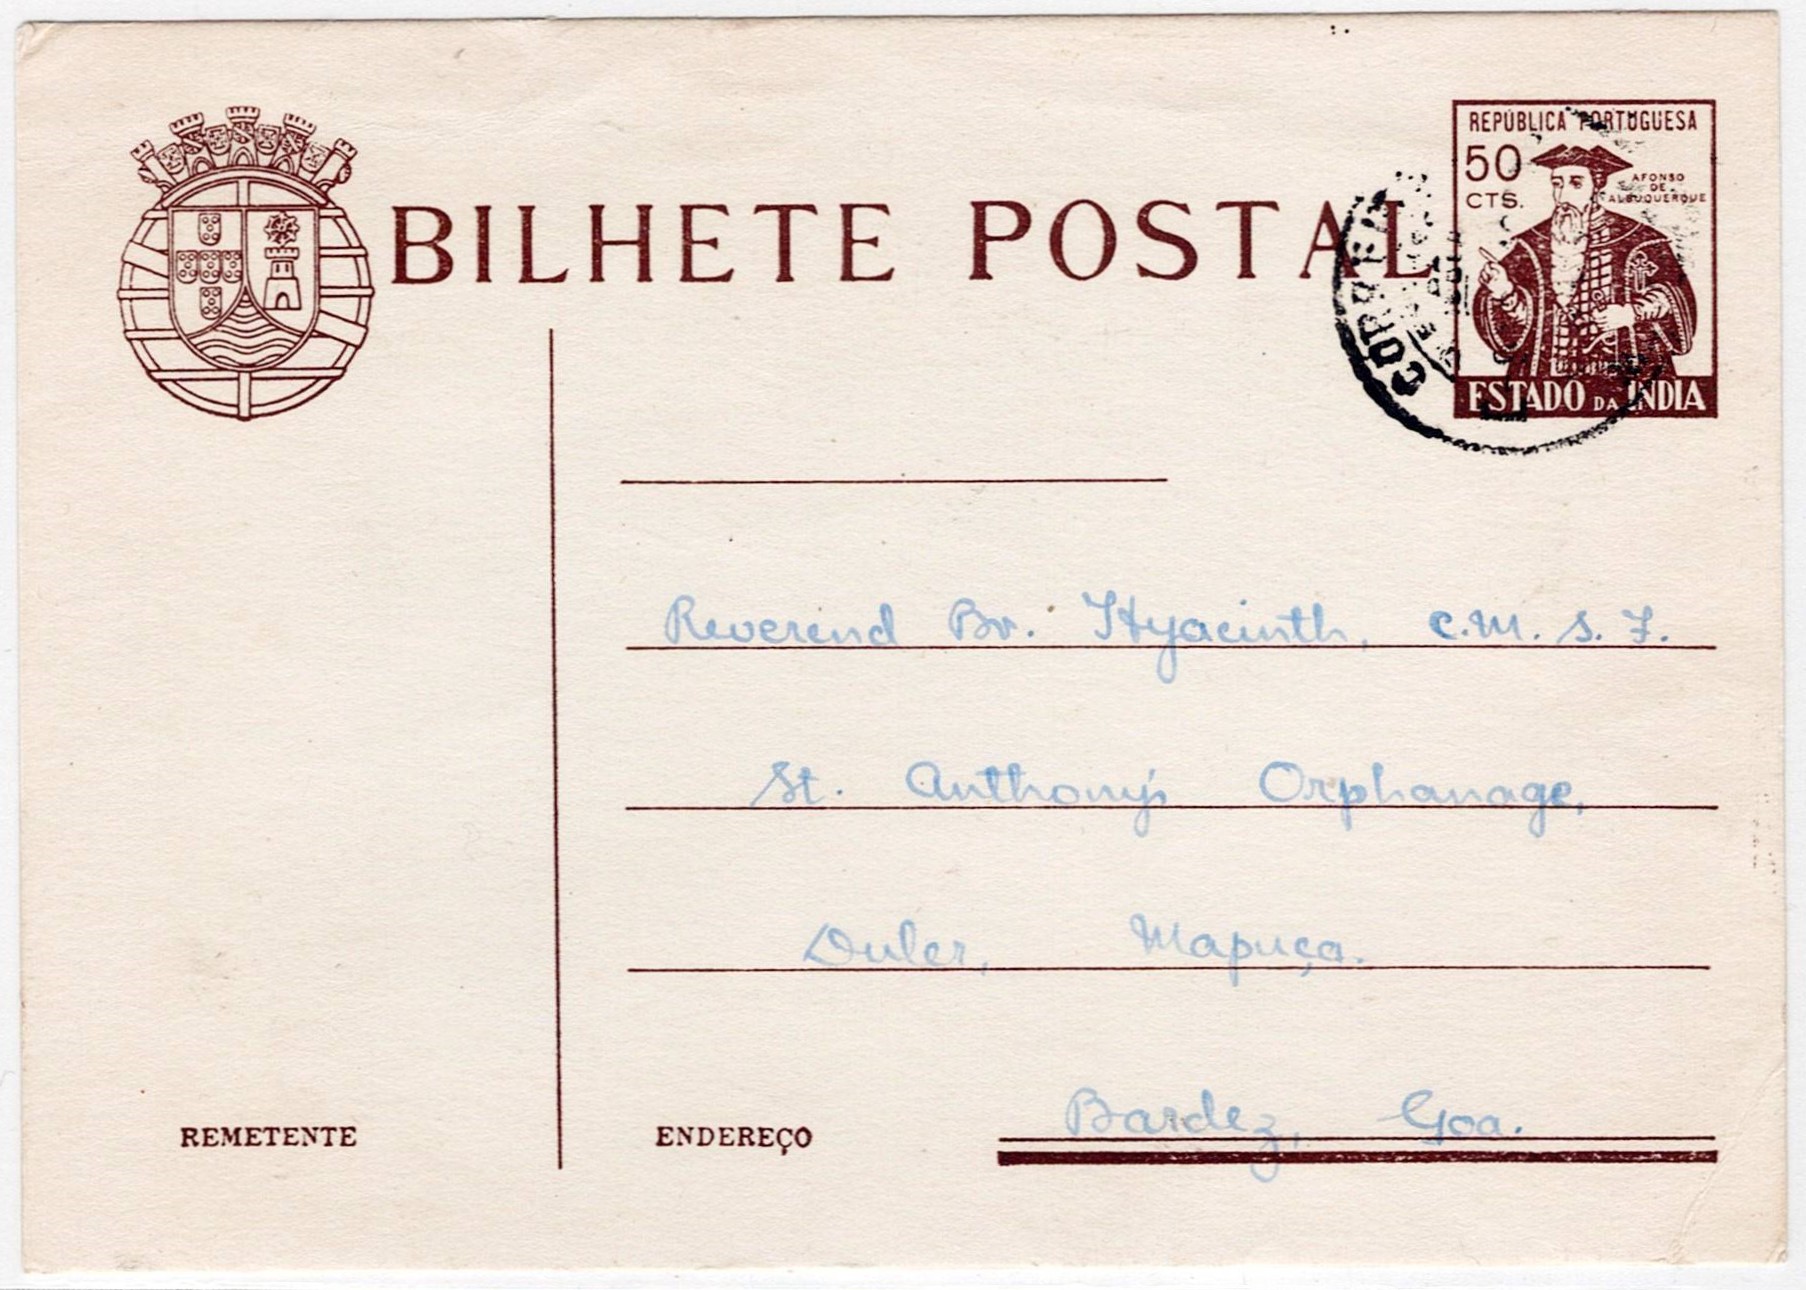 BILHETE POSTAL
REPÚBLICA PORTUGUESA
50
CTS.
AFONSO
DE
ALBUQUERQUE
ESTADO DA INDIA
CORREI
Reverend Br. Hyacinth, C.M.S.F.
St. Anthony's Orphanage,
Duler, Mapuça.
Bardez, Goa.
REMETENTE
ENDEREÇO